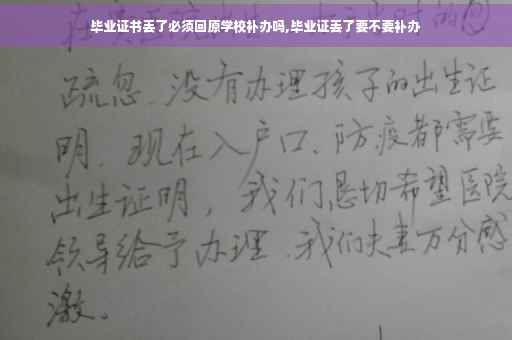 毕业证书丢了必须回原学校补办吗,毕业证丢了要不要补办
疏忽.没有办理孩子的出生证
明.现在入户口、防疫都需要
出生证明，我们恳切希望医院
领导给予办理.我们夫妻万分感
激。